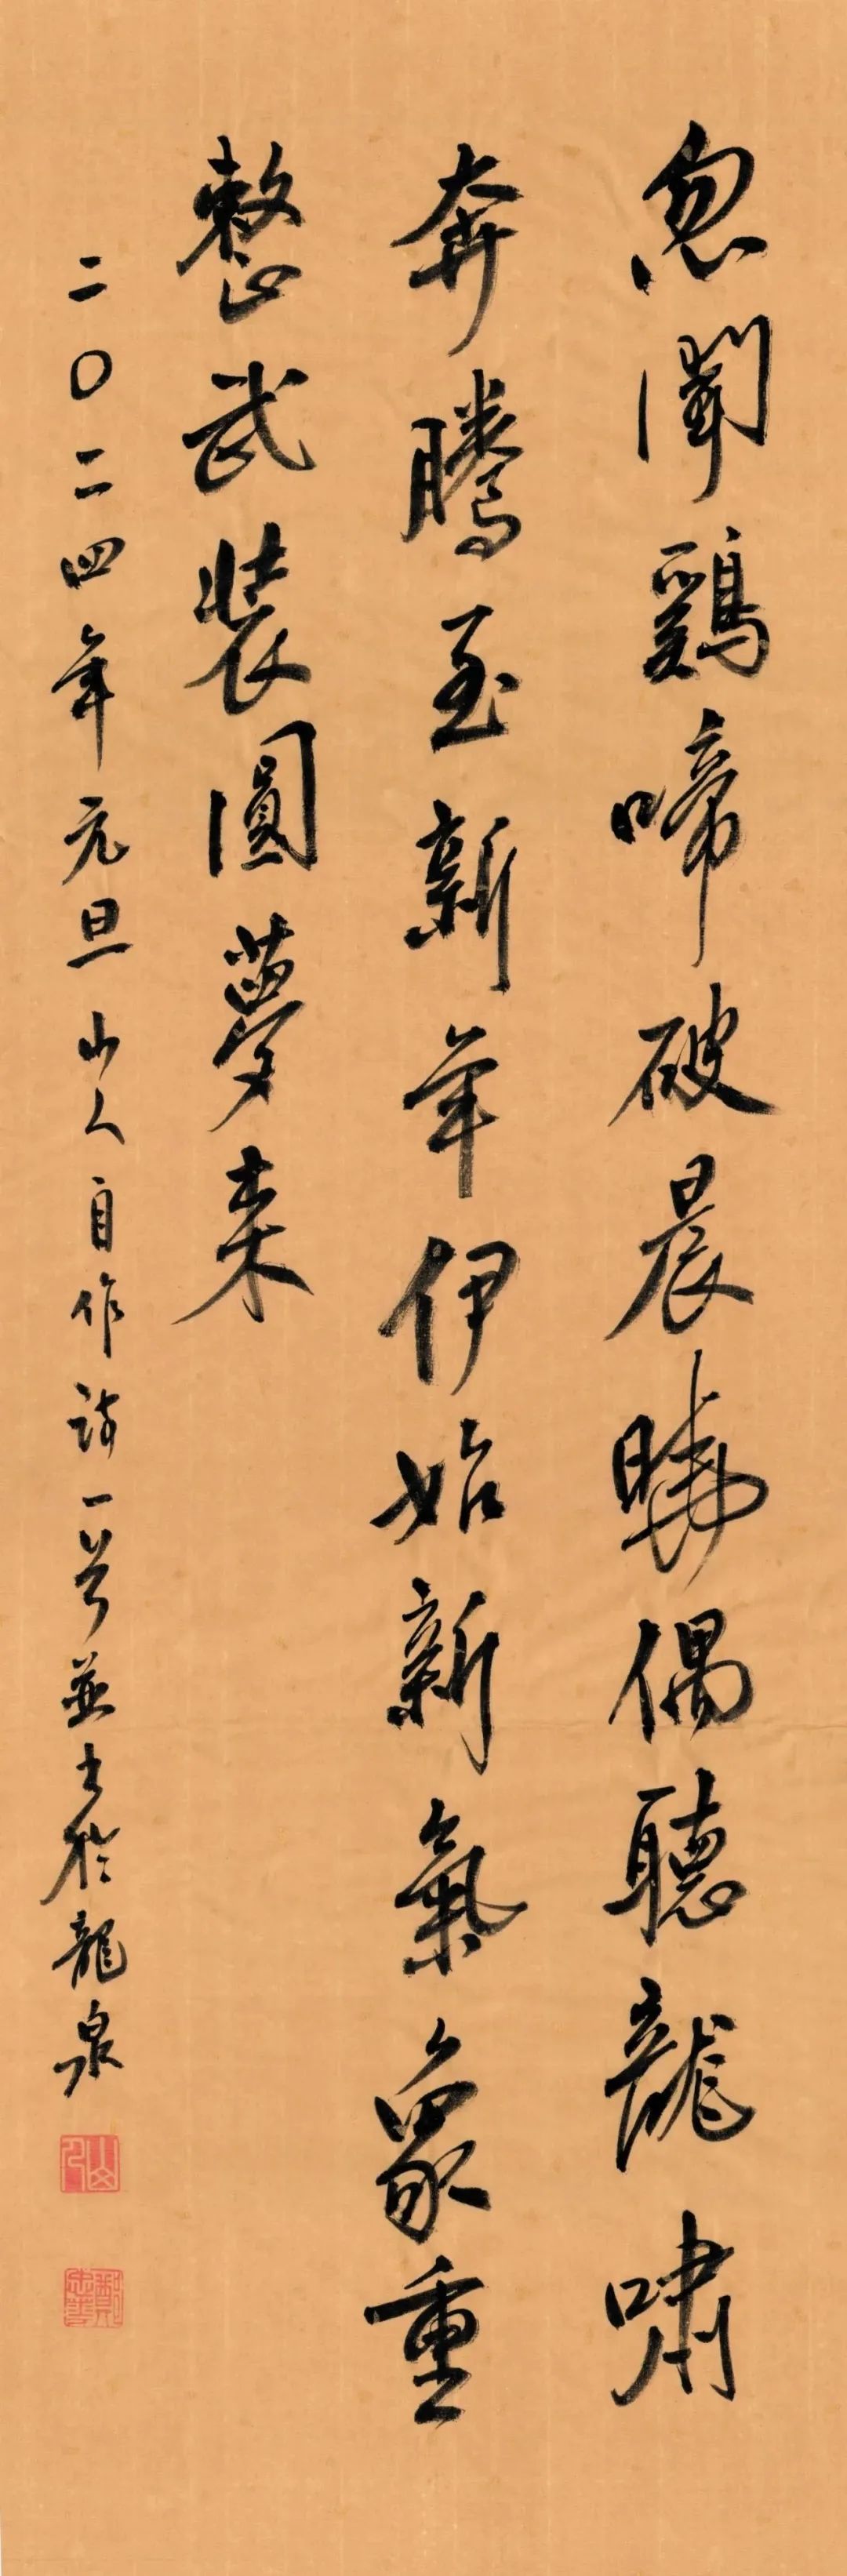 忽聞鷄啼破晨曉偶聽龍嘯
奔騰至新年伊始新氣象重
整武裝圓夢来
二〇二四年元旦山人自作詩一首並书於龍泉
山人